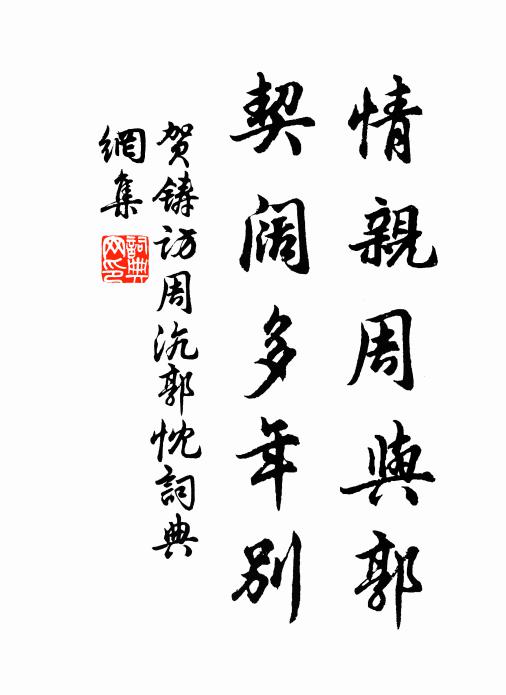 情親周與郭
契闊多年別
賀鑄訪周沆郭忱詞典
網集
詞典網印